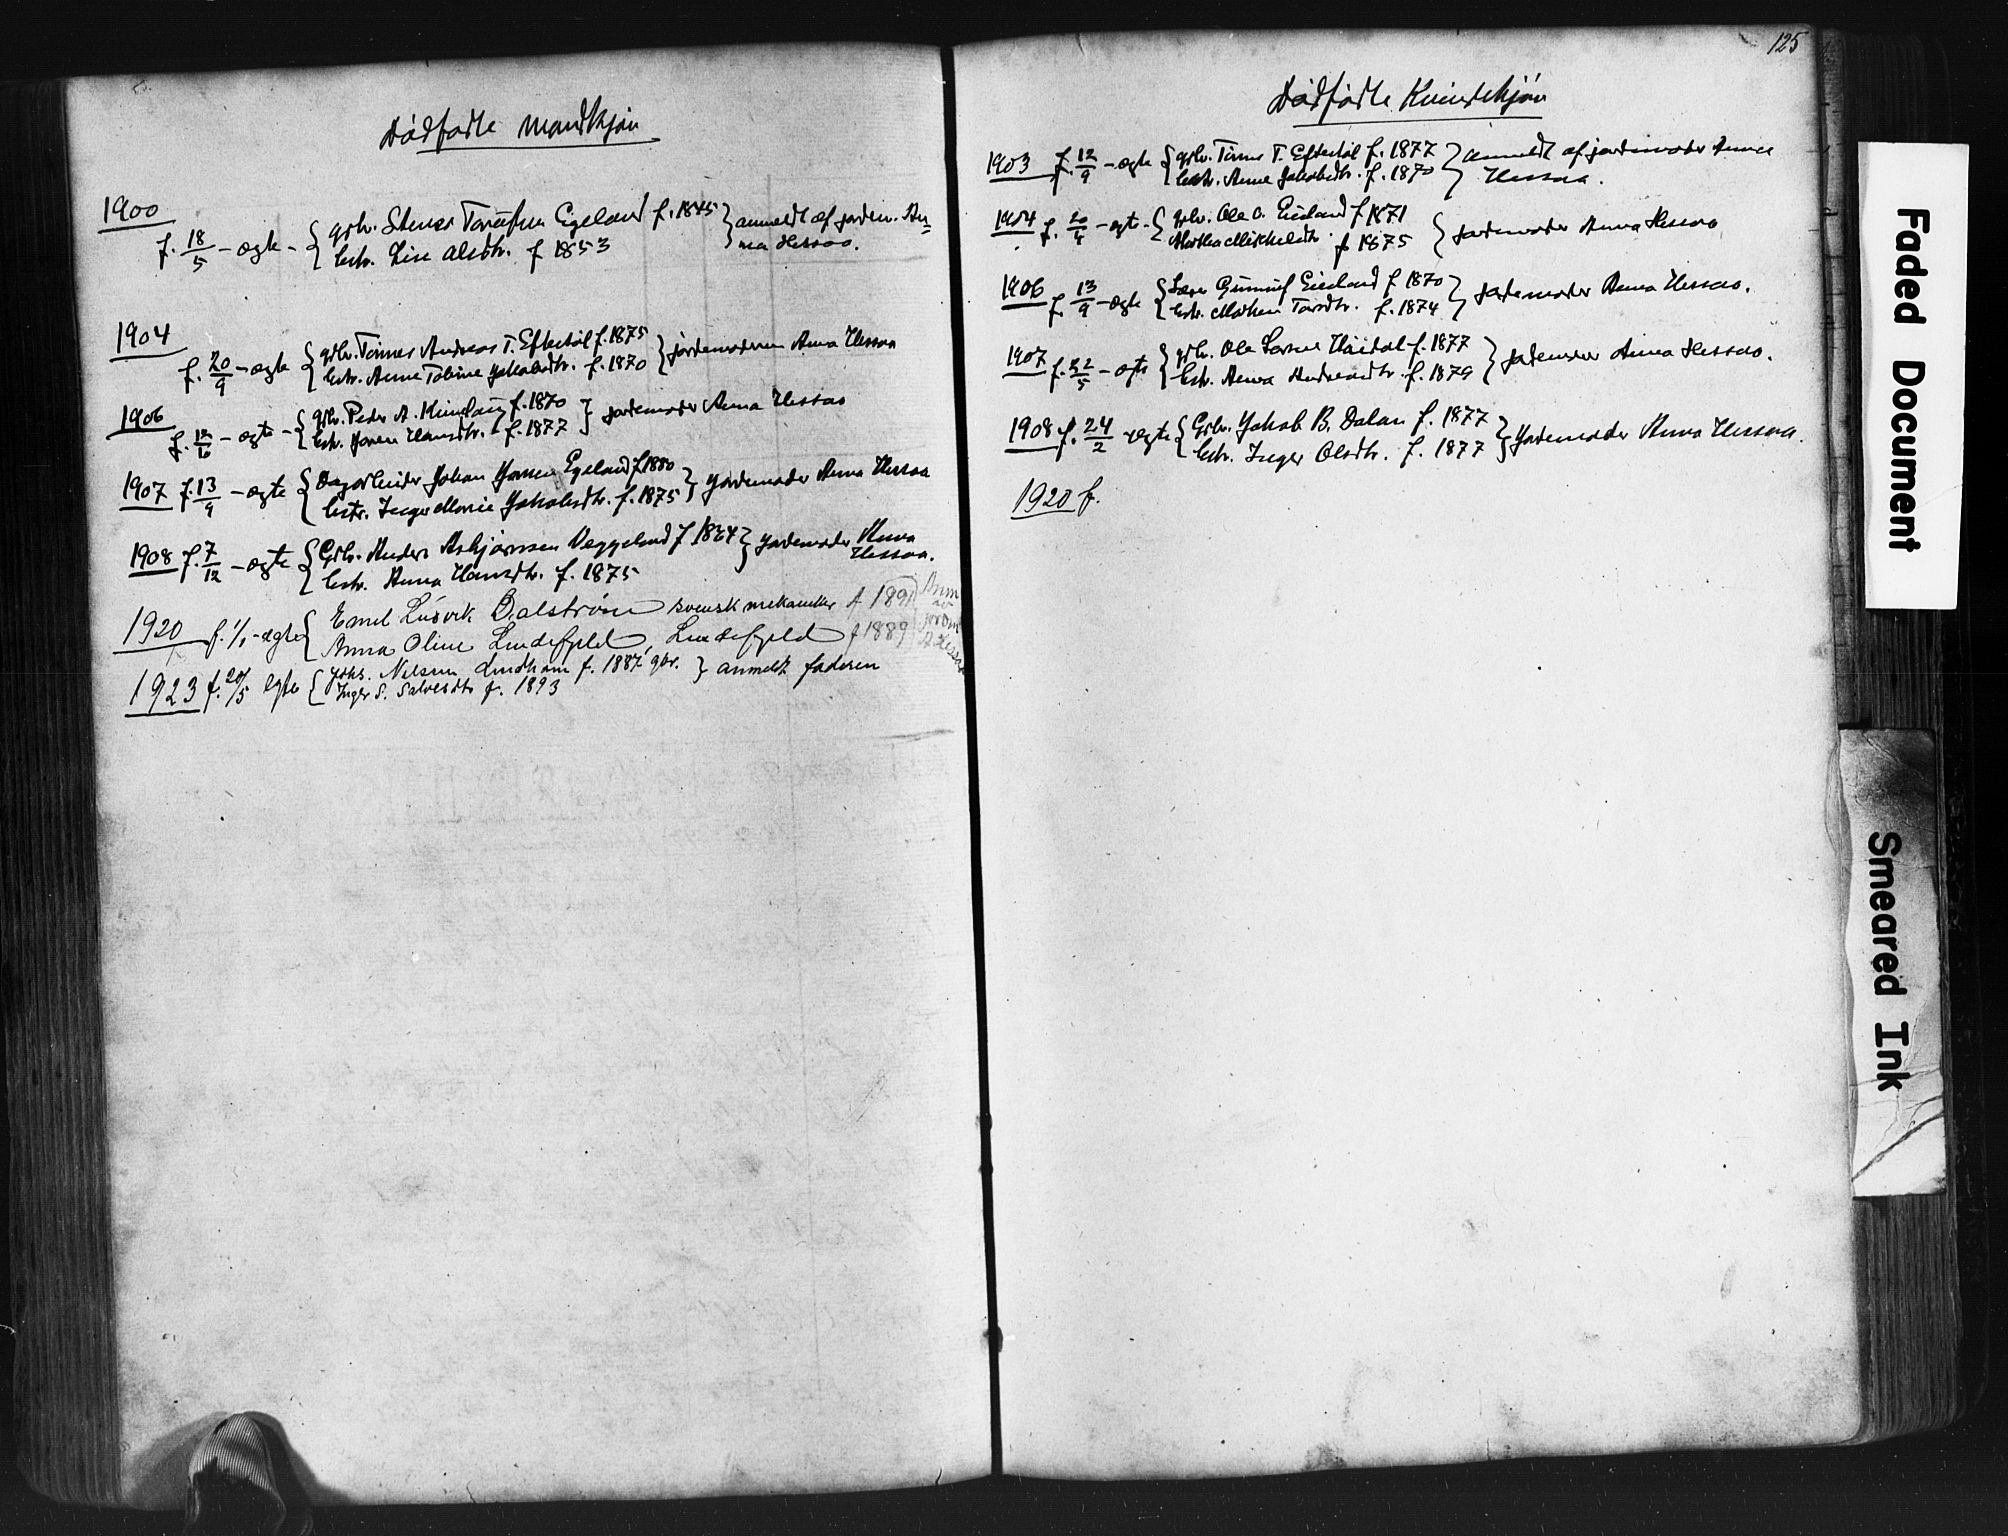 Dødfødte mandkjøn
1900
f. 18/5 - ægte - { grbr. Stener Egeland f. 1845 } anmeldt af jordm. An-
hstr. Lise Olsdtr. f 1853 na Hessaa.
1904
f. 20/9 - ægte { grbr. Tønnes Andreas T. Eftestøl f. 1875 } jordemoderen Anna Hessaa
hstr. Anne Tobine Jakobsdtr. f. 1870
1906
f. 12/10 - ægte - { grbr. Peder A. f. 1870 } jordemoder Anna Hessaa
hstr. Hansdtr. f. 1877
1907 f. 13/9 - ægte { Dagarbeider Johan Egeland f 1880 } Jordemoder Anna Hessaa
hstr. Inger Marie Jakobsdtr. f. 1875
1908 f. 7/12 - ægte { Grbr. Anders Asbjørnsen Veggeland f. } Jordemoder Anna
hstr. Anna Hansdtr. f. 1875 Hessaa.
1920 f. 1/1 - ægte { Emil Ludvik Dalstrøm svensk mekaniker f 1891
Anna Oline Lindefjeld, Lindefjeld f 1889
1923 f. 20/5 egte { Johs. Nilsen Lindham f. 1887, gbr. } anmeldt faderen
Inger S. Salvesdtr f. 1893
125
Dødfødte Kvindekjøn
1903 f. 12/9 - ægte { grbr. Tønnes T. Eftestøl f. 1877 } anmeldt af jordemoder Anna
hstr. Anne Jakobsdtr. f. 1870 Hessaa.
1904 f. 20/4 - ægte - { grbr. Ole O. Eieland f 1871
Martha Mikkelsdtr. f 1875 } jordemoder Anna Hessaa
1906 f. 13/9 - ægte { Eieland f 1870 } jordemoder Anna Hessaa.
hstr. Maren f. 1874
1907 f. 22/5 - ægte { grbr. Ole f. 1877 } jordemoder Anna Hessaa.
hstr. Anna Andreasdtr. f. 1879
1908 f. 24/2 - ægte { Grbr. Jakob B. Dalan f. 1877 } Jordemoder Anna Hessaa.
hstr. Inger Olsdtr. f. 1877
1920 f.
Faded Document
Smeared Ink